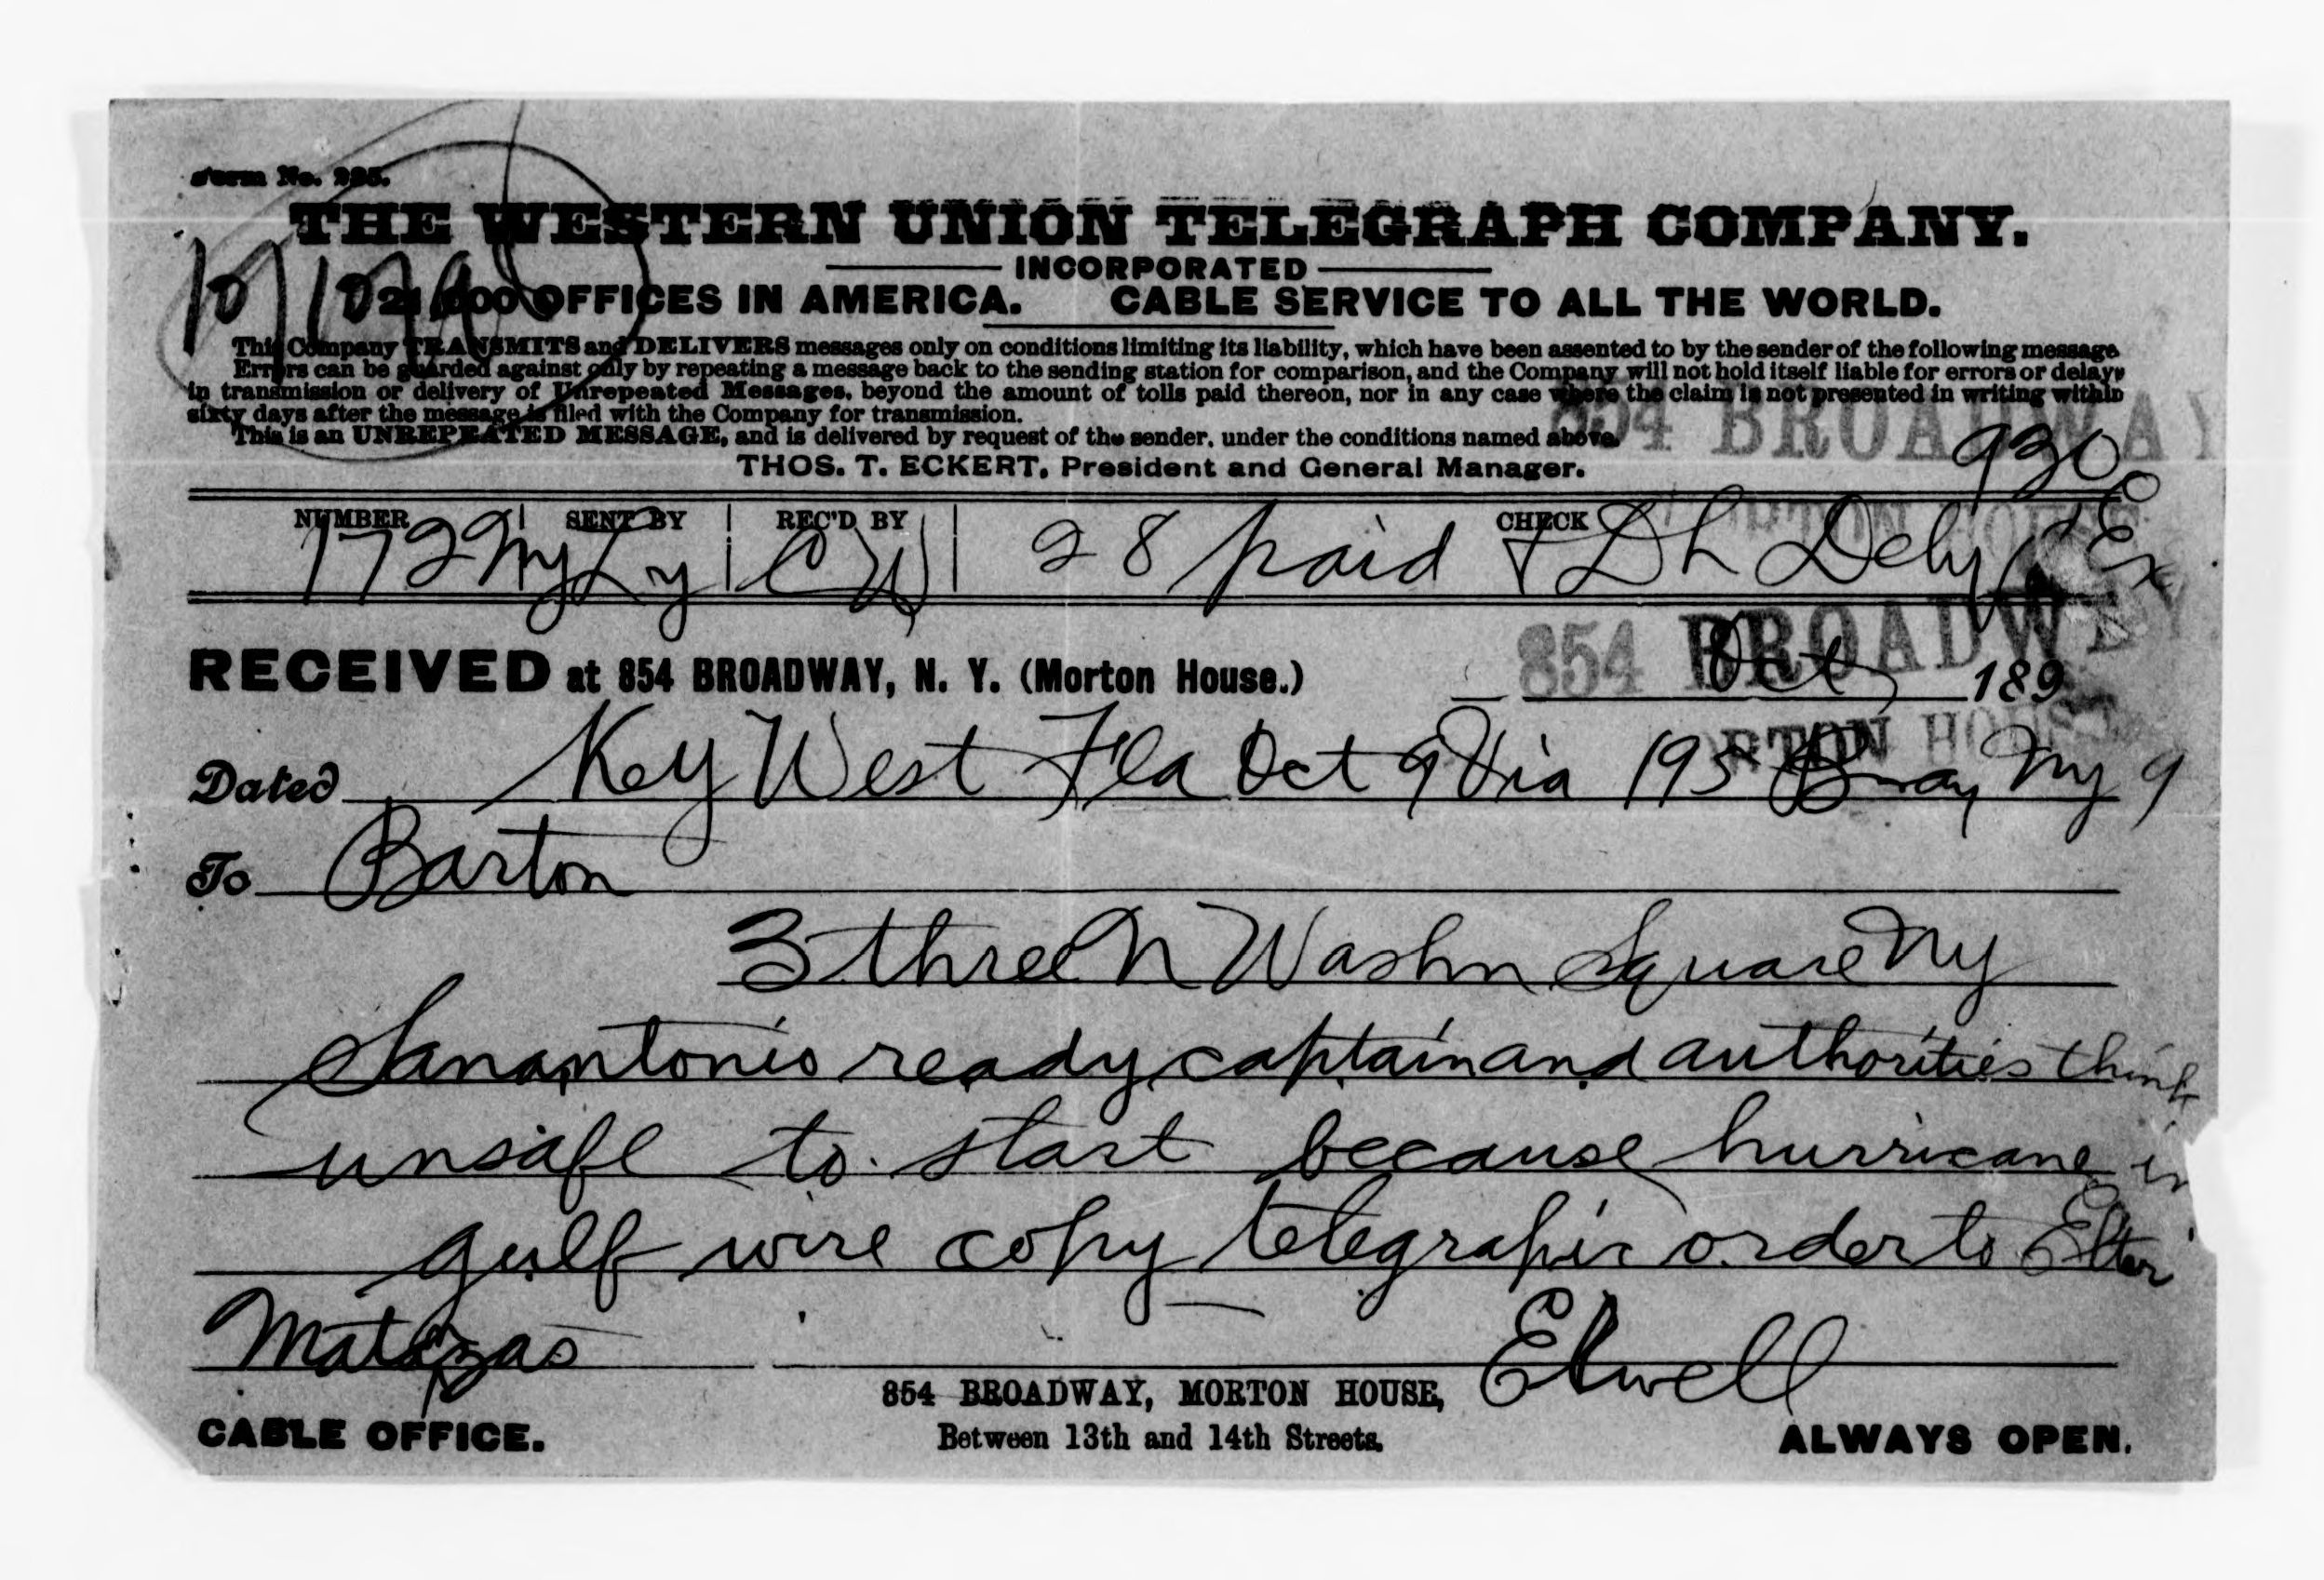 Form No. 225.
THE WESTERN UNION TELEGRAPH COMPANY.
INCORPORATED
21,000 OFFICES IN AMERICA. CABLE SERVICE TO ALL THE WORLD.
This Company TRANSMITS and DELIVERS messages only on conditions limiting its liability, which have been assented to by the sender of the following message
Errors can be guarded against only by repeating a message back to the sending station for comparison, and the Company will not hold itself liable for errors or delays
in transmission or delivery of Unrepeated Messages, beyond the amount of tolls paid thereon, nor in any case where the claim is not presented in writing within
sixty days after the message is filed with the Company for transmission.
This is an UNREPEATED MESSAGE, and is delivered by request of the sender, under the conditions named above.
854 BROADWAY
THOS. T. ECKERT, President and General Manager.
930
NUMBER SENT BY REC'D BY CHECK
172 Ny CW 28 paid Dh Dely Ex
854 BROADWAY
RECEIVED at 854 BROADWAY, N. Y. (Morton House.) Oct 189
MORTON HOUSE
Dated Key West Fla Oct 9 Via 195 Bway Ny 9
To Barton
3 three N Washn Square Ny
Sanantonio ready captain and authorities think
unsafe to start because hurricane in
gulf wire copy telegraphic order to
Matazas Elwell
854 BROADWAY, MORTON HOUSE,
CABLE OFFICE. Between 13th and 14th Streets. ALWAYS OPEN.